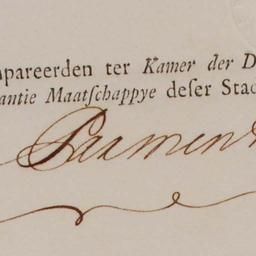 pareerden ter Kamer der D
antie Maatſchappye deſer Stad